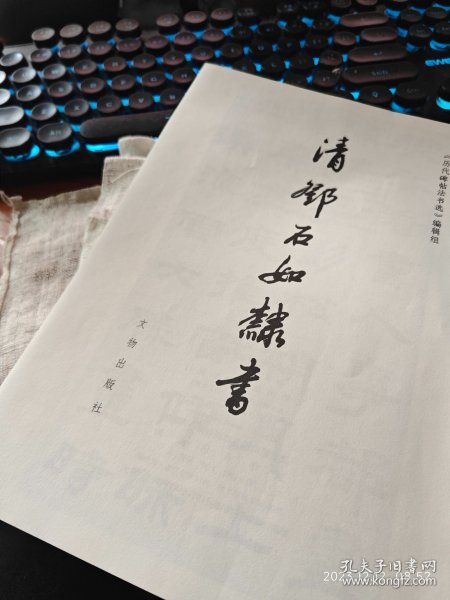 《历代碑帖法书选》编辑组
清鄧石如隸書
文物出版社
孔夫子旧书网
2023.12.12 09:52
www.kongfz.com